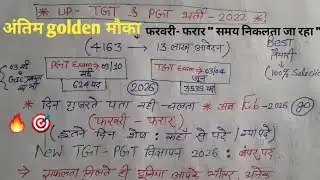 अंतिम golden मौका फरवरी- फरार " समय निकलता जा रहा "
* UP- TGT & PGT भर्ती - 2022 *
(4163 → 13 लाख आवेदन)
BEST
PGT Exam → 03/10
मई
624 पद
TGT Exam → 03/04
जून
3539 पद
(100% Selection
2026
* दिन गुजरते पता नहीं चलता * अब Feb-2026
(फरवरी - फरार)
New TGT- PGT विज्ञापन 2026 : बंपर पद
* सफलता मिलते ही दुनिया आपके भीतर अनेक